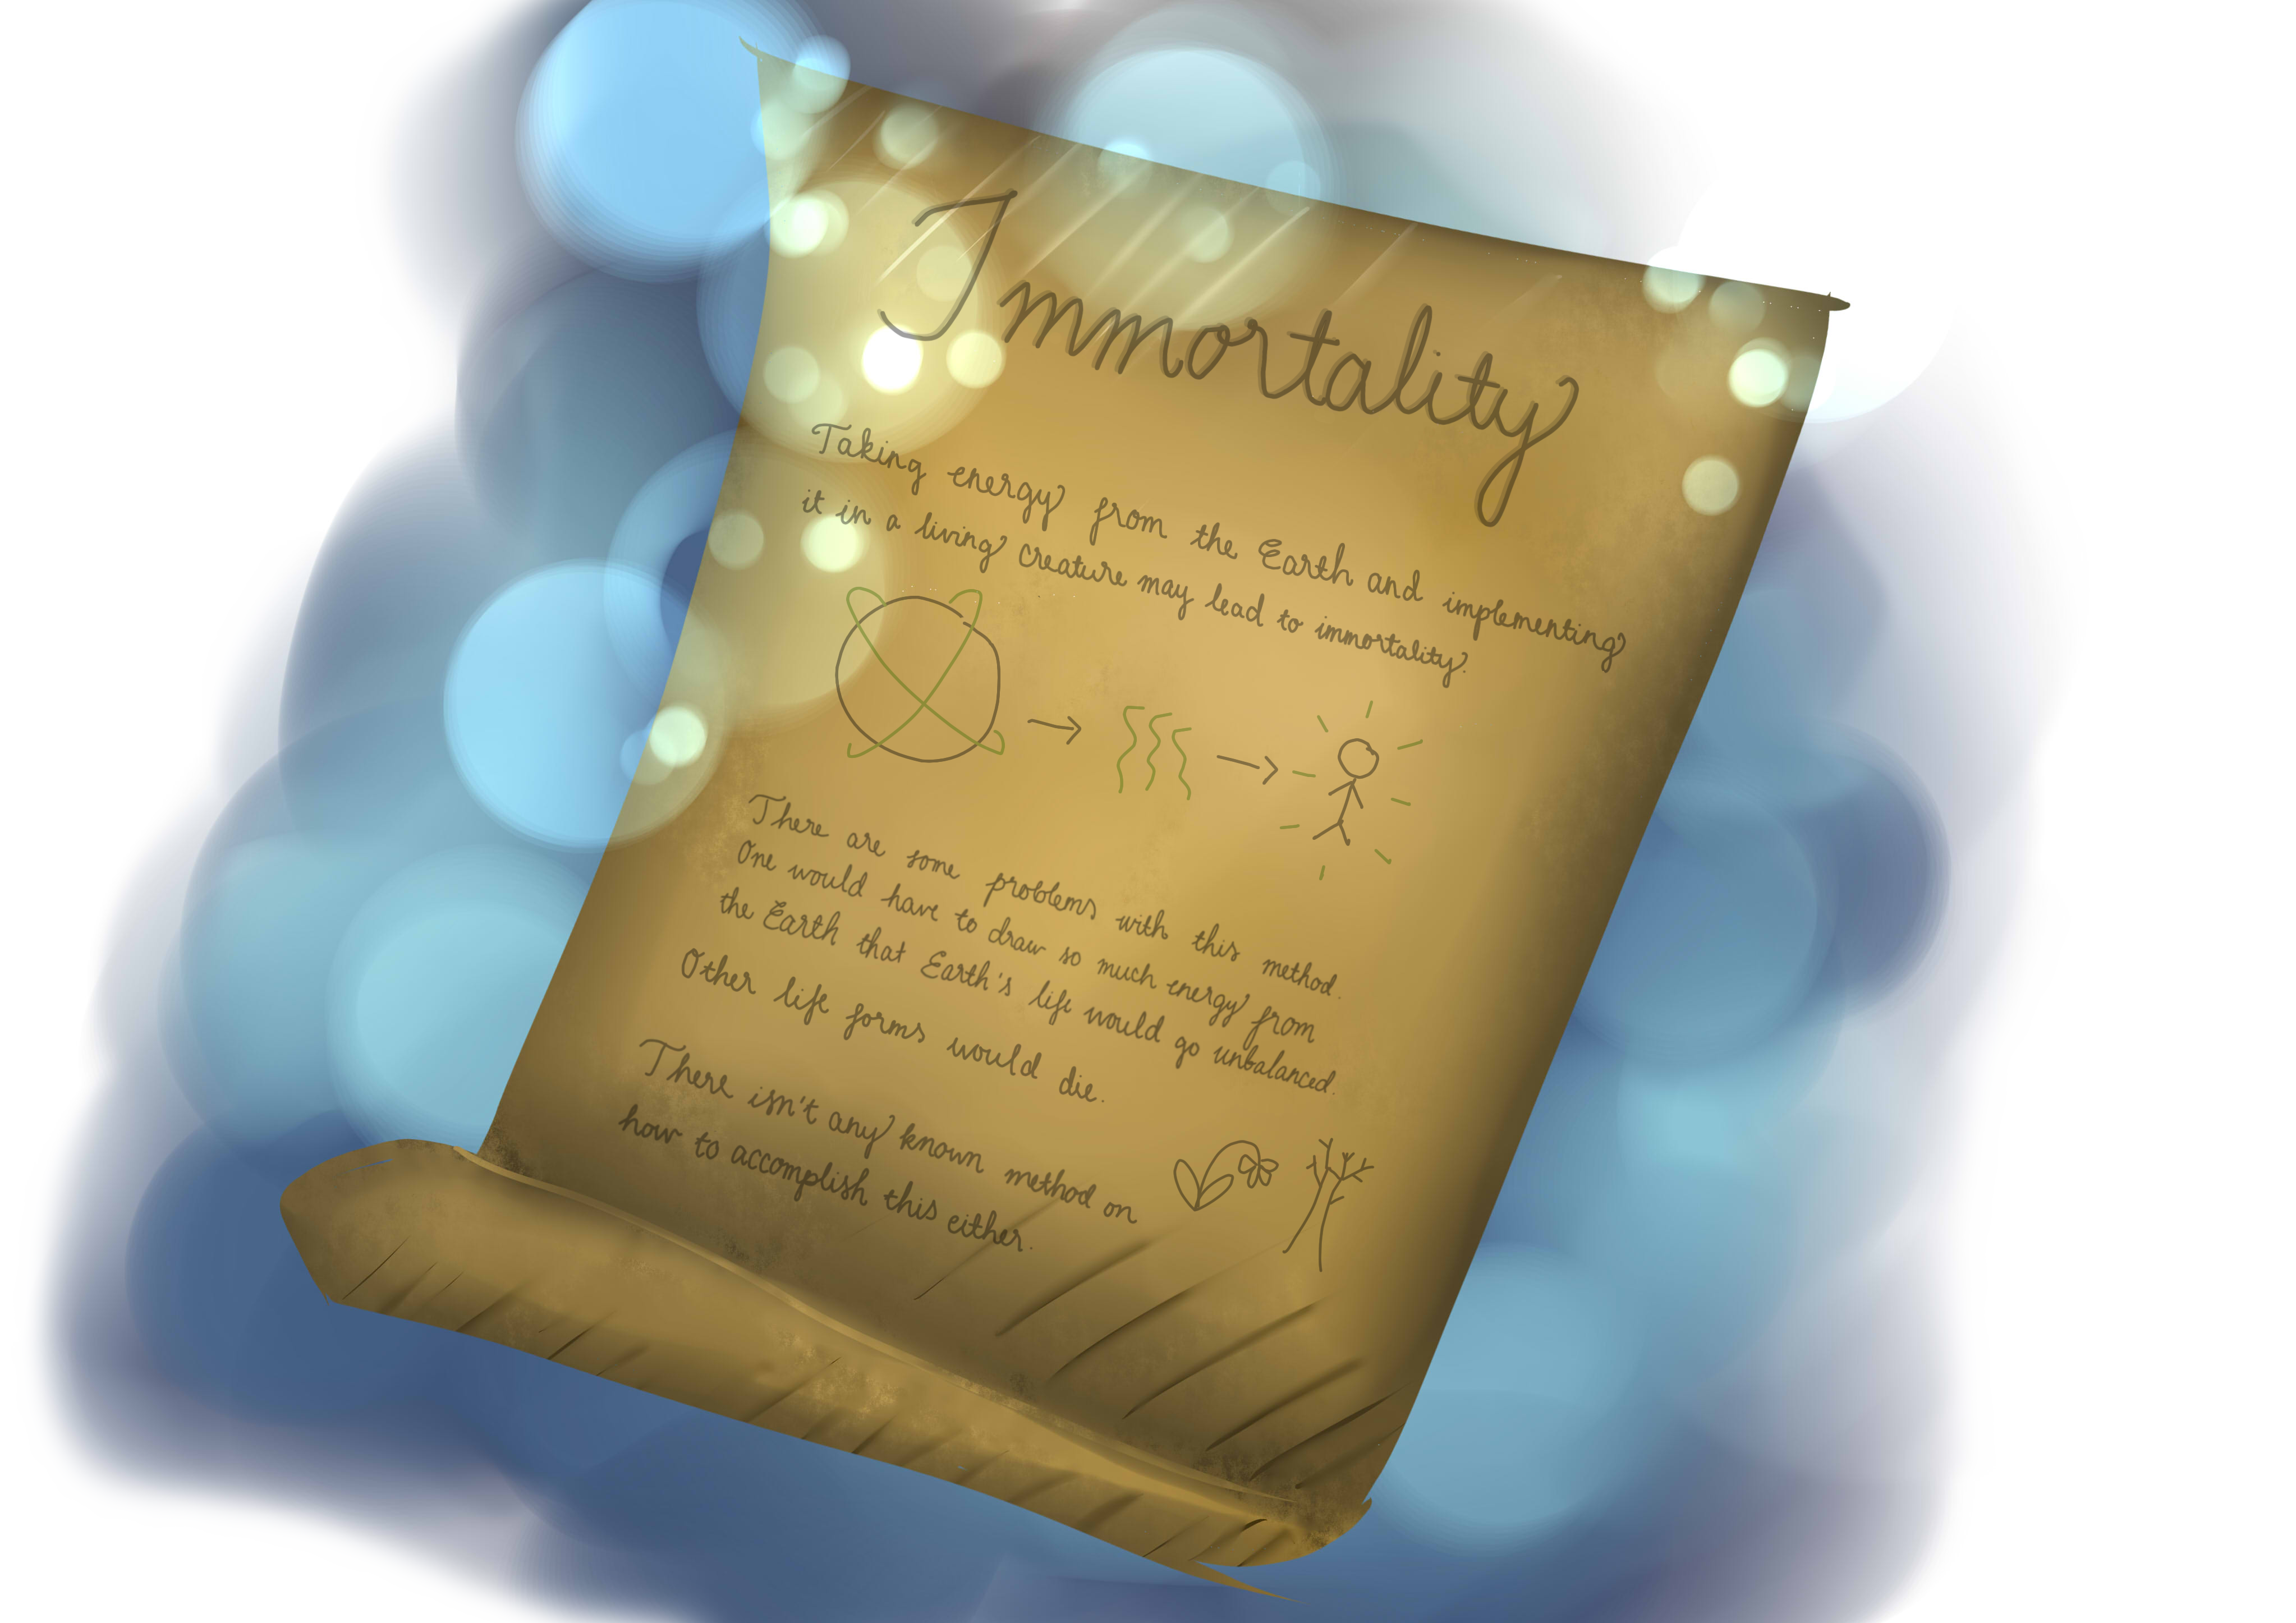 Immortality
Taking energy from the Earth and implementing
it in a living creature may lead to immortality.
There are some problems with this method.
One would have to draw so much energy from
the Earth that Earth's life would go unbalanced.
Other life forms would die.
There isn't any known method on
how to accomplish this either.